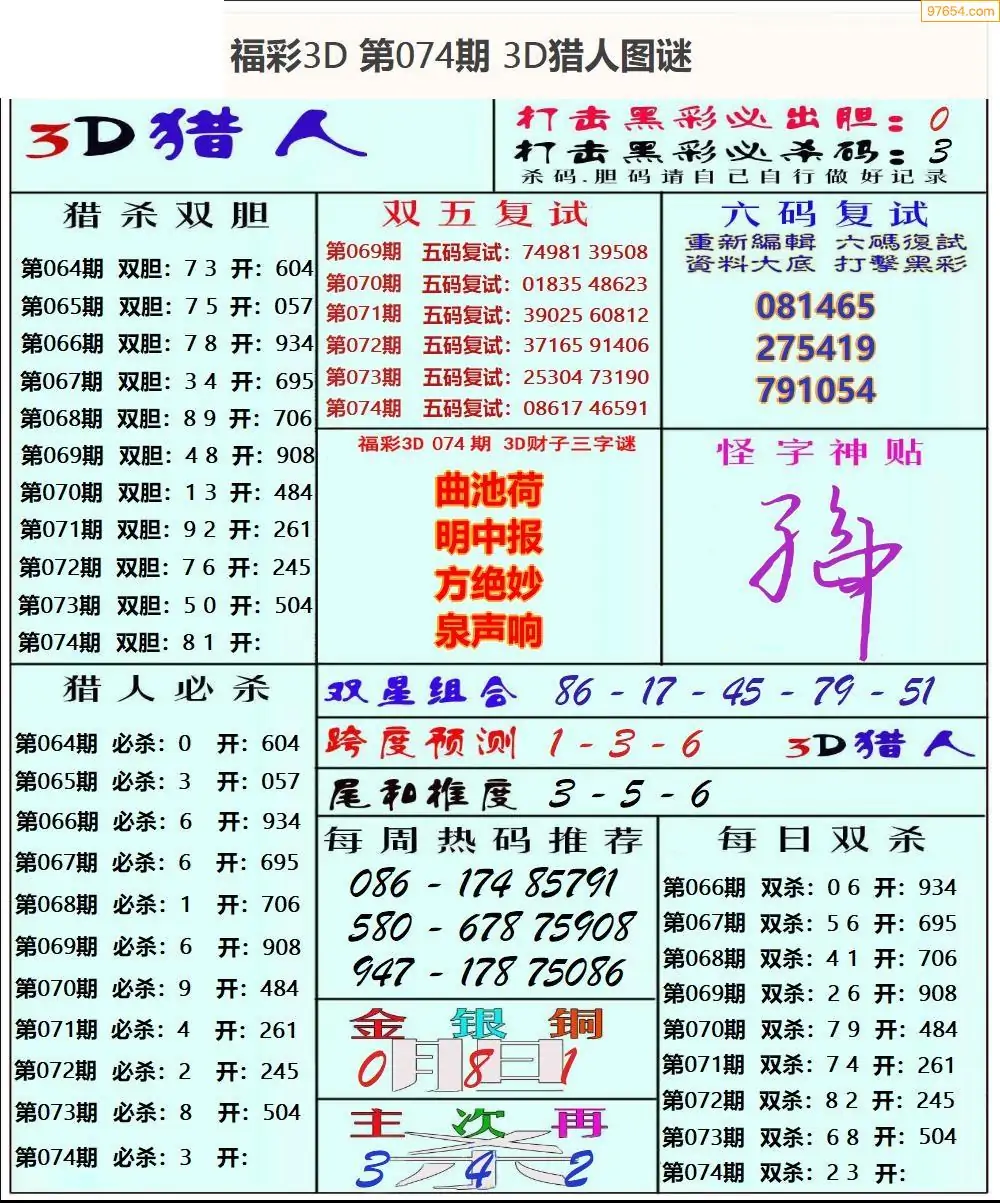 97654.com
福彩3D 第074期 3D猎人图谜
3D猎人
打击黑彩必出胆：0
打击黑彩必杀码：3
杀码.胆码请自己自行做好记录
猎杀双胆
第064期 双胆：7 3 开：604
第065期 双胆：7 5 开：057
第066期 双胆：7 8 开：934
第067期 双胆：3 4 开：695
第068期 双胆：8 9 开：706
第069期 双胆：4 8 开：908
第070期 双胆：1 3 开：484
第071期 双胆：9 2 开：261
第072期 双胆：7 6 开：245
第073期 双胆：5 0 开：504
第074期 双胆：8 1 开：
双五复试
第069期 五码复试：74981 39508
第070期 五码复试：01835 48623
第071期 五码复试：39025 60812
第072期 五码复试：37165 91406
第073期 五码复试：25304 73190
第074期 五码复试：08617 46591
六码复试
重新編輯 六碼復試
資料大底 打擊黑彩
081465
275419
791054
福彩3D 074 期 3D财子三字谜
曲池荷
明中报
方绝妙
泉声响
怪字神贴
猎人必杀
第064期 必杀：0 开：604
第065期 必杀：3 开：057
第066期 必杀：6 开：934
第067期 必杀：6 开：695
第068期 必杀：1 开：706
第069期 必杀：6 开：908
第070期 必杀：9 开：484
第071期 必杀：4 开：261
第072期 必杀：2 开：245
第073期 必杀：8 开：504
第074期 必杀：3 开：
双星组合 86 - 17 - 45 - 79 - 51
跨度预测 1 - 3 - 6 3D猎人
尾和推度 3 - 5 - 6
每周热码推荐
086 - 174 85791
580 - 678 75908
947 - 178 75086
金银铜
月日
0 8 1
主次再
杀
3 4 2
每日双杀
第066期 双杀：0 6 开：934
第067期 双杀：5 6 开：695
第068期 双杀：4 1 开：706
第069期 双杀：2 6 开：908
第070期 双杀：7 9 开：484
第071期 双杀：7 4 开：261
第072期 双杀：8 2 开：245
第073期 双杀：6 8 开：504
第074期 双杀：2 3 开：